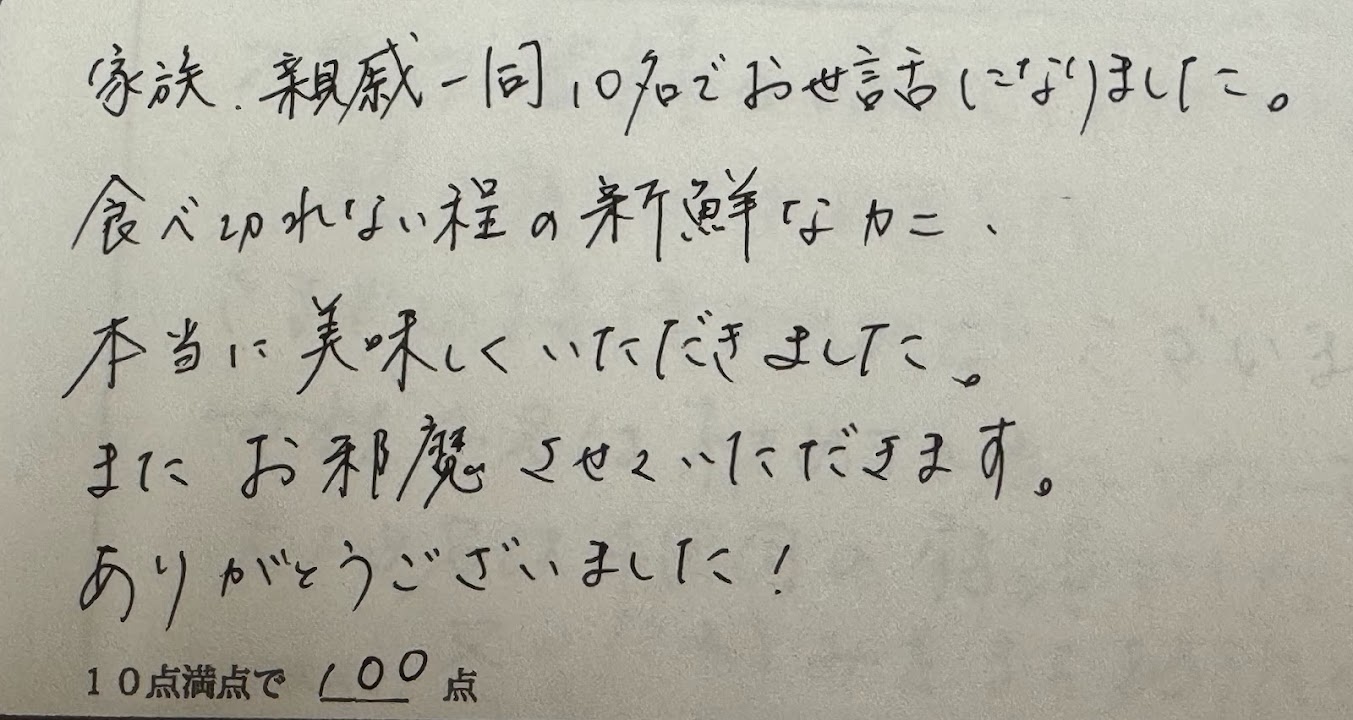 家族、親戚一同10名でお世話になりました。
食べ切れない程の新鮮なカニ、
本当に美味しくいただきました。
またお邪魔させていただきます。
ありがとうございました！
１０点満点で 100 点